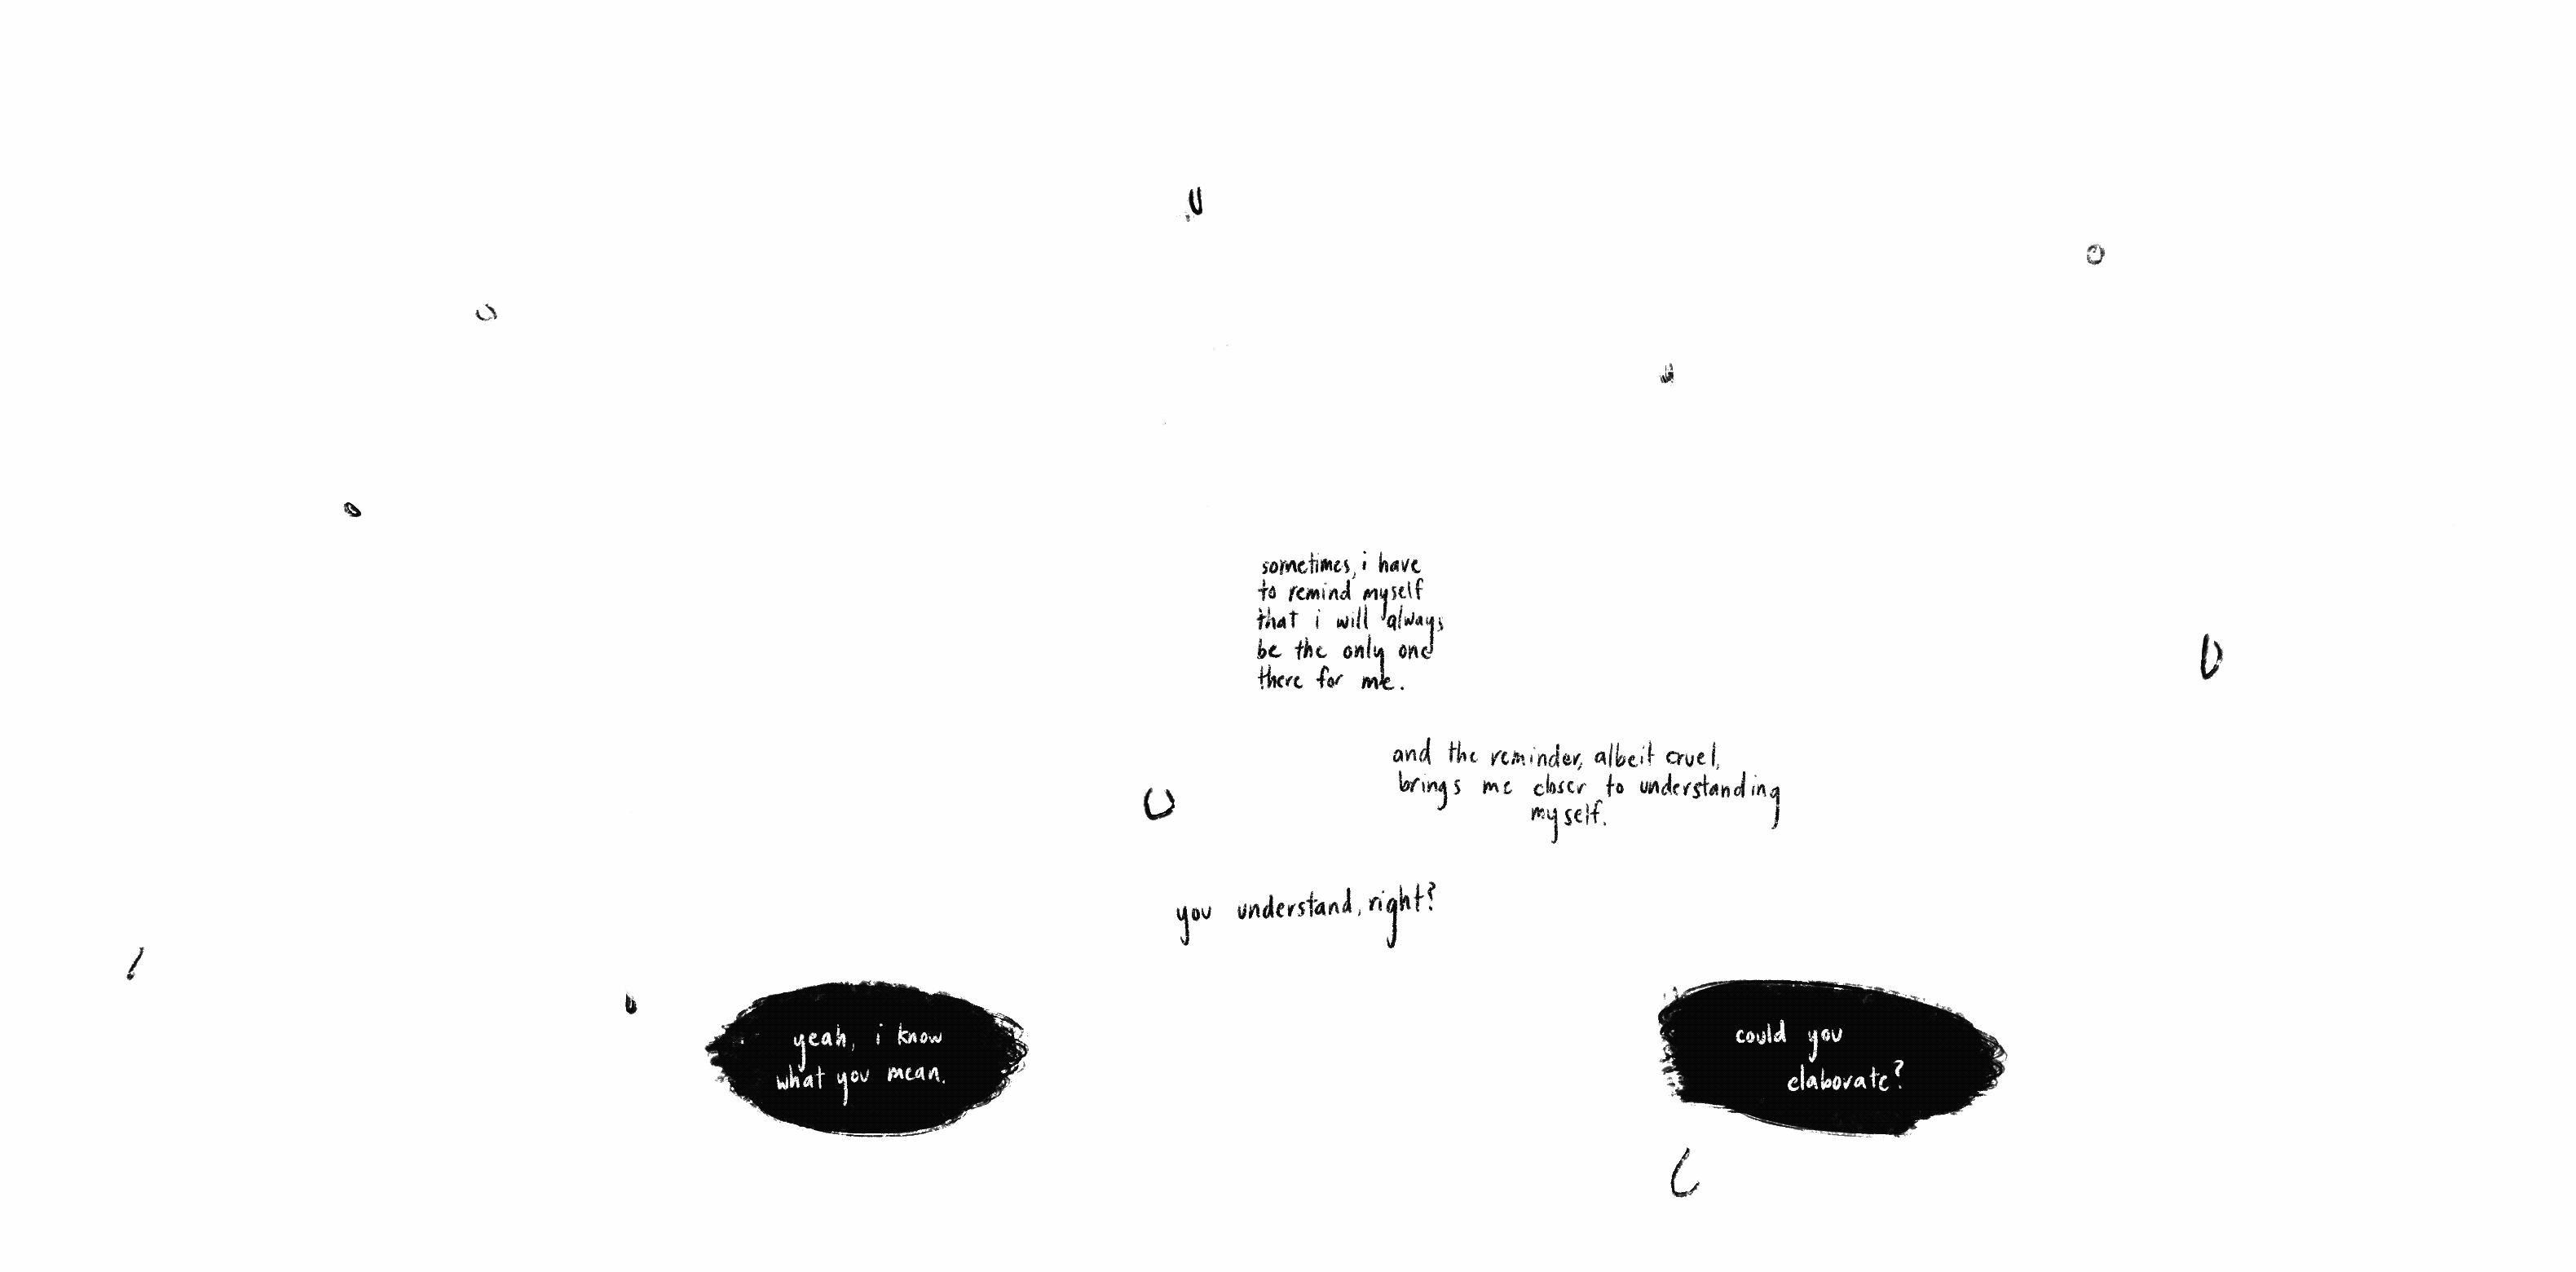 sometimes, i have
to remind myself
that i will always
be the only one
there for me.
and the reminder, albeit cruel,
brings me closer to understanding
myself.
you understand, right?
yeah, i know
what you mean.
could you
elaborate?